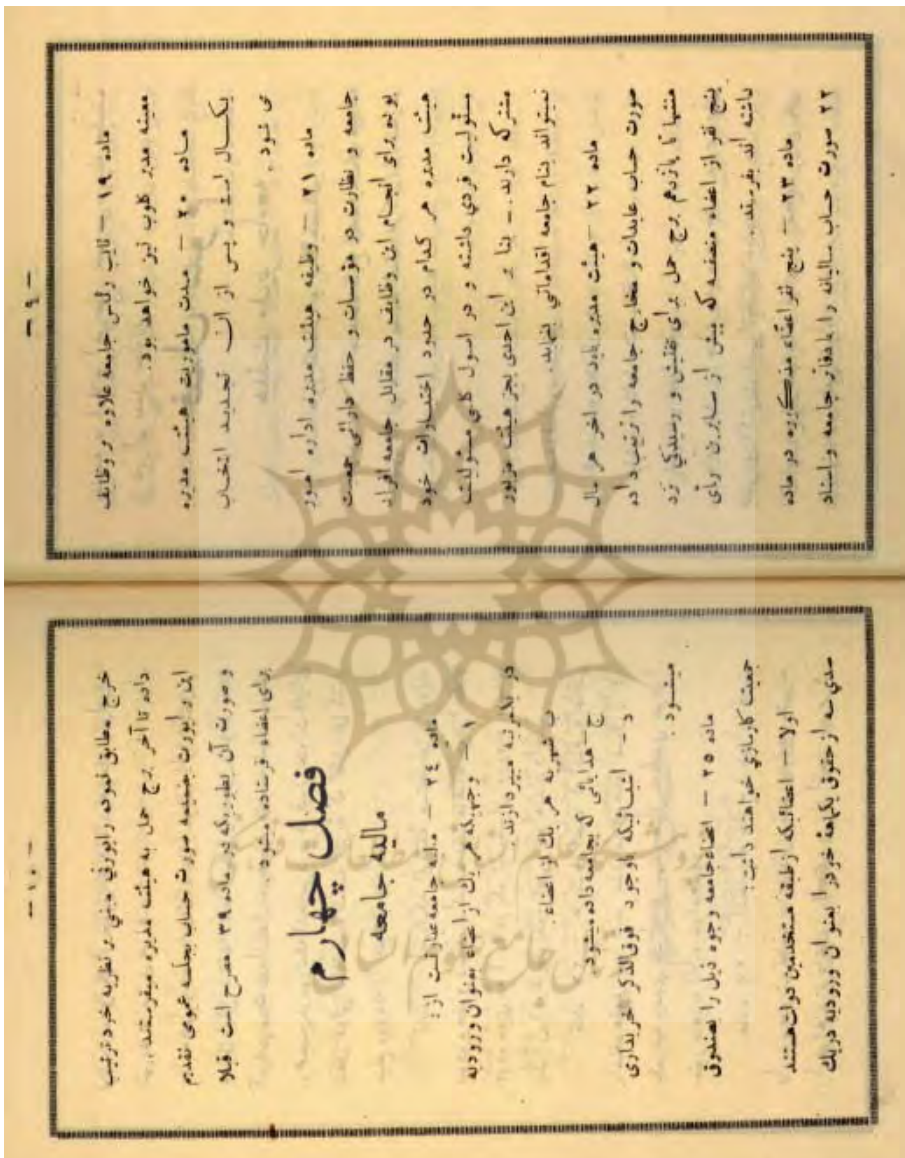 - ۹ -
ماده ۱۹ - نایب رئیس جامعه علاوه بر وظایف
معینه مدیر کلوب نیز خواهد بود.
ماده ۲۰ - مدت ماموریت هیئت مدیره
یکسال است و پس از آن تجدید انتخاب
می شود.
ماده ۲۱ - وظیفه هیئت مدیره اداره امور
جامعه و نظارت در مؤسسات و حفظ دارائی جمعیت
بوده برای انجام این وظایف در مقابل جامعه افراد
هیئت مدیره هر کدام در حدود اختیارات خود
مسئولیت فردی داشته و در اصول کلی مسئولیت
مشترکه دارند. - بنا بر این احدی بجز هیئت مزبور
نمیتواند بنام جامعه اقداماتی بنماید.
ماده ۲۲ - هیئت مدیره باید در آخر هر سال
صورت حساب عایدات و مخارج جامعه را ترتیب داده
منتها تا پانزدهم برج حمل برای تفتیش و رسیدگی نزد
پنج نفر از اعضاء منصفه که بیش از سایرین رأی
داشته اند بفرستد.
ماده ۲۳ - پنج نفر اعضاء مذکوره در ماده
۲۲ صورت حساب سالیانه را با دفاتر جامعه و اسناد
- ۱۰ -
خرج مطابق نموده راپورتی مبنی بر نظریه خود ترتیب
داده تا آخر برج حمل به هیئت مدیره میفرستند.
این راپورت بضمیمه صورت حساب بجلسه عمومی تقدیم
و صورت آن بطوریکه در ماده ۳۹ مصرح است قبلا
برای اعضاء فرستاده میشود.
فصل چهارم
مالیه جامعه
ماده ۲٤ - مالیه جامعه عبارتست از:
۱ - وجهیکه هر یک از اعضاء بعنوان ورودیه
در یکمرتبه میپردازند.
ب شهریه هر یک از اعضاء.
ج - هدایائی که بجامعه داده میشود.
د - اشیائیکه با وجوه فوق‌الذکر خریداری
میشود.
ماده ۲۵ - اعضاء جامعه وجوه ذیل را بصندوق
جمعیت کارسازی خواهند داشت:
اولا - اعضائیکه از طبقه مستخدمین دولت هستند
صدی سه از حقوق یکماهۀ خود را بعنوان ورودیه در یک